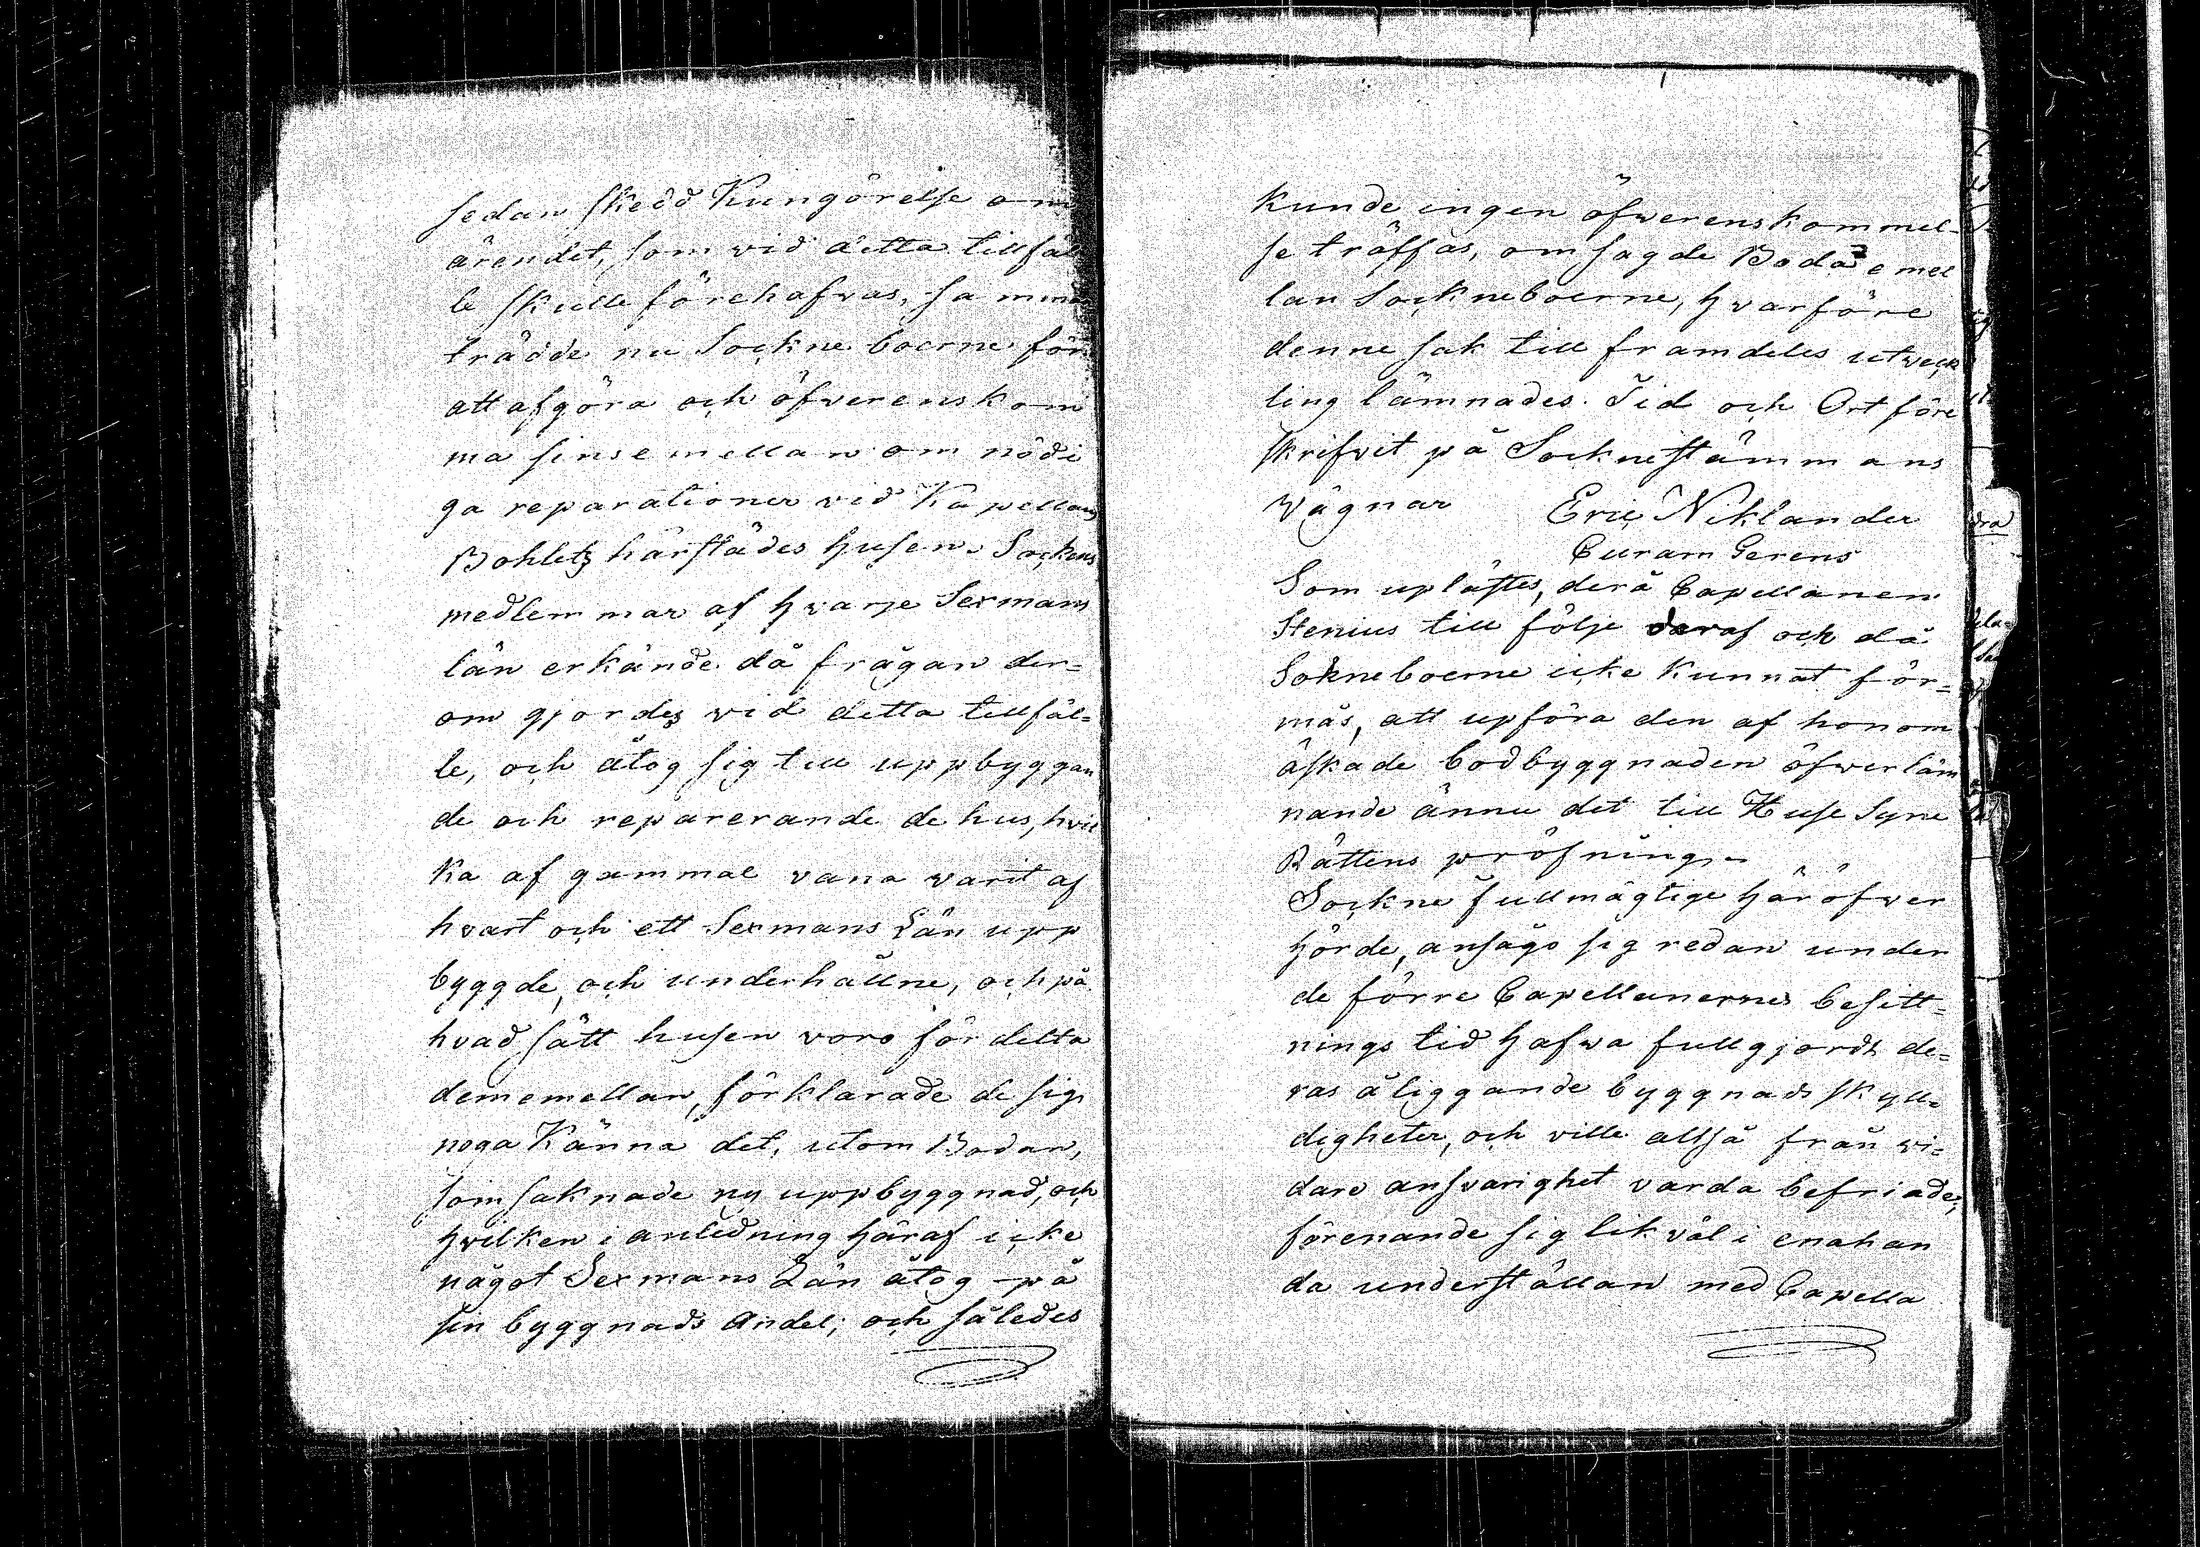 sedan skedd Kungörelse om
ärendet, som vid detta tillfäl
le skulle förehafvas, samman
trädde nu Sockneboerne för
att afgöra och öfverenskom
ma sinsemellan om nödi
ga reparationer vid Kapellans
Bohletz härstädes husen. Sockens
medlemmar af hvarje Sexmans
län erkände då frågan der=
om gjordes vid detta tillfäl=
le, och åtog sig till uppbyggan
de och reparerande de hus, hvil
ka af gammal vana varit af
hvart och ett Sexmans Län upp
byggde, och underhållne, och på
hvad sätt husen voro för detta
dememellan, förklarade de sig
noga Känna det, utom Bodan,
som saknade ny uppbyggnad, och
hvilken i anledning häraf icke
något Sexmans Län åtog på
sin byggnads Andel; och således
kunde ingen öfwerenskommel-
se träffas, om sagde Boda emel
lan Sockneboerne, hvarföre
denne sak till framdeles utveck
ling lämnades. Tid och Ort före
skrifvit på Socknestämmans
Vägnar Eric Niklander
Curam Gerens
Som uplästes, derå Capellanen
Stenius till följe deraf och då
Sokneboerne icke Kunnat för=
mås, att upföra den af honom
äskade bodbyggnaden öfwerläm
nande ännu det till Huse Syne
Rättens pröfning.
Sockne fullmägtige häröfver
hörde, ansågo sig redan under
de förre Capellanernes besitt=
nings tid hafwa fullgjordt de=
ras åliggande byggnads skyll=
digheter, och ville altså från vi=
dare ansvarighet varda befriade,
förenande sig likväl i enahan
da underställan med Capella